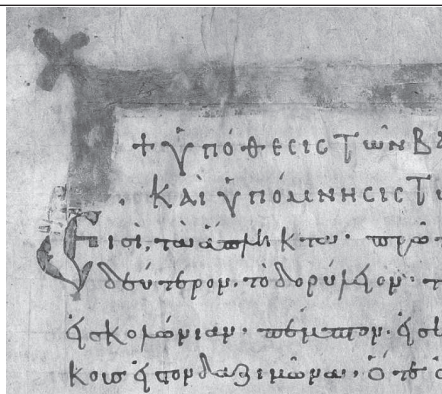 + ὑπόθεσις τῶν βα
καὶ ὑπόμνησις τ
Εἰσὶ, τὰ ἄπληκτα· πρῶτ
δεύτερον· τὸ δορύλεον· τ
εἰσ κολώνιαν· πέμπτον· εἰσ
κοισ εἰσ τὸν δαζιμῶνα· ὅτε